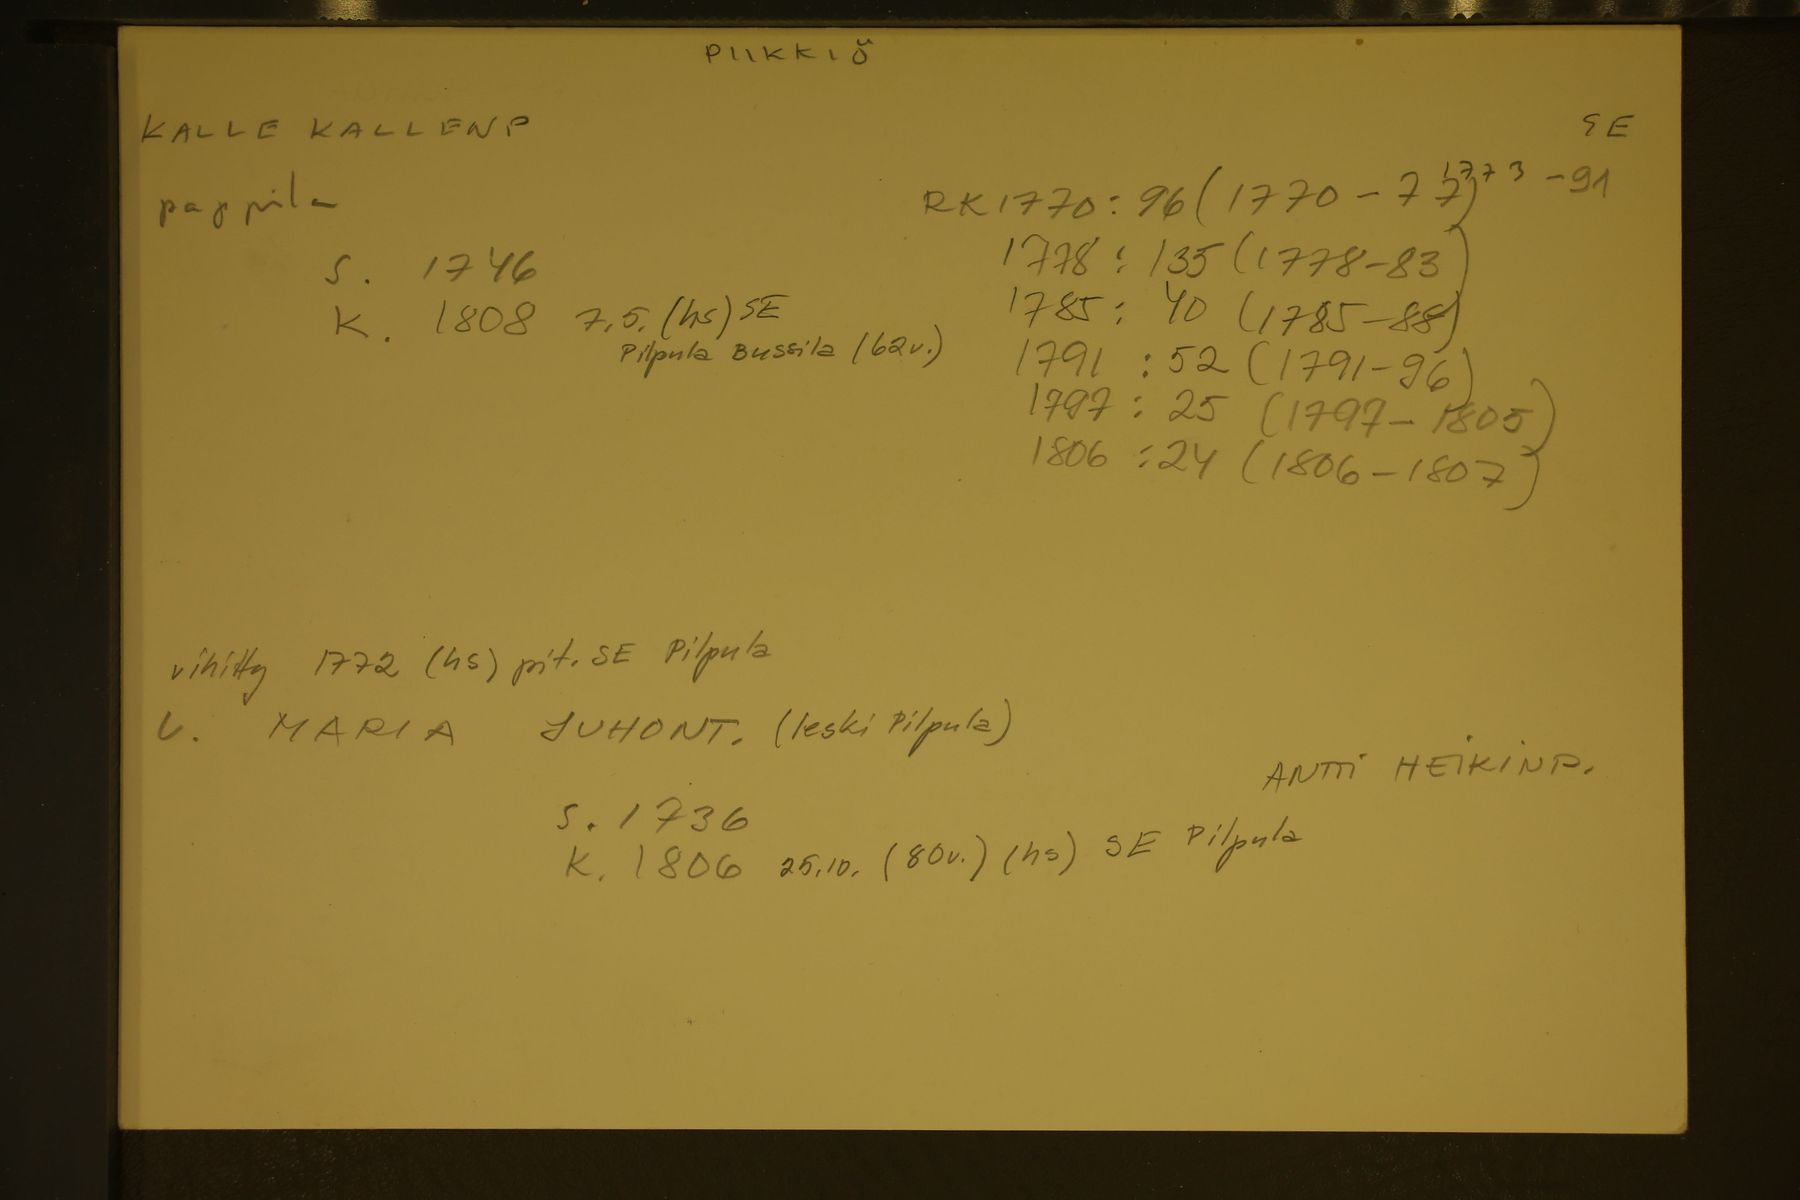 PIIKKIÖ
KALLE KALLENP
SE
pappila
RK 1770: 96 (1770-77) 1773-91
s. 1746
1778: 135 (1778-83)
k. 1808 7.5. (hs) SE
1785: 40 (1785-88)
Pilpula Bussila (62v.)
1791: 52 (1791-96)
1797: 25 (1797-1805)
1806: 24 (1806-1807)
vihitty 1772 (hs) pit. SE Pilpula
v. MARIA JUHONT. (leski Pilpula)
ANTTI HEIKINP.
s. 1736
k. 1806 25.10. (80v.) (hs) SE Pilpula